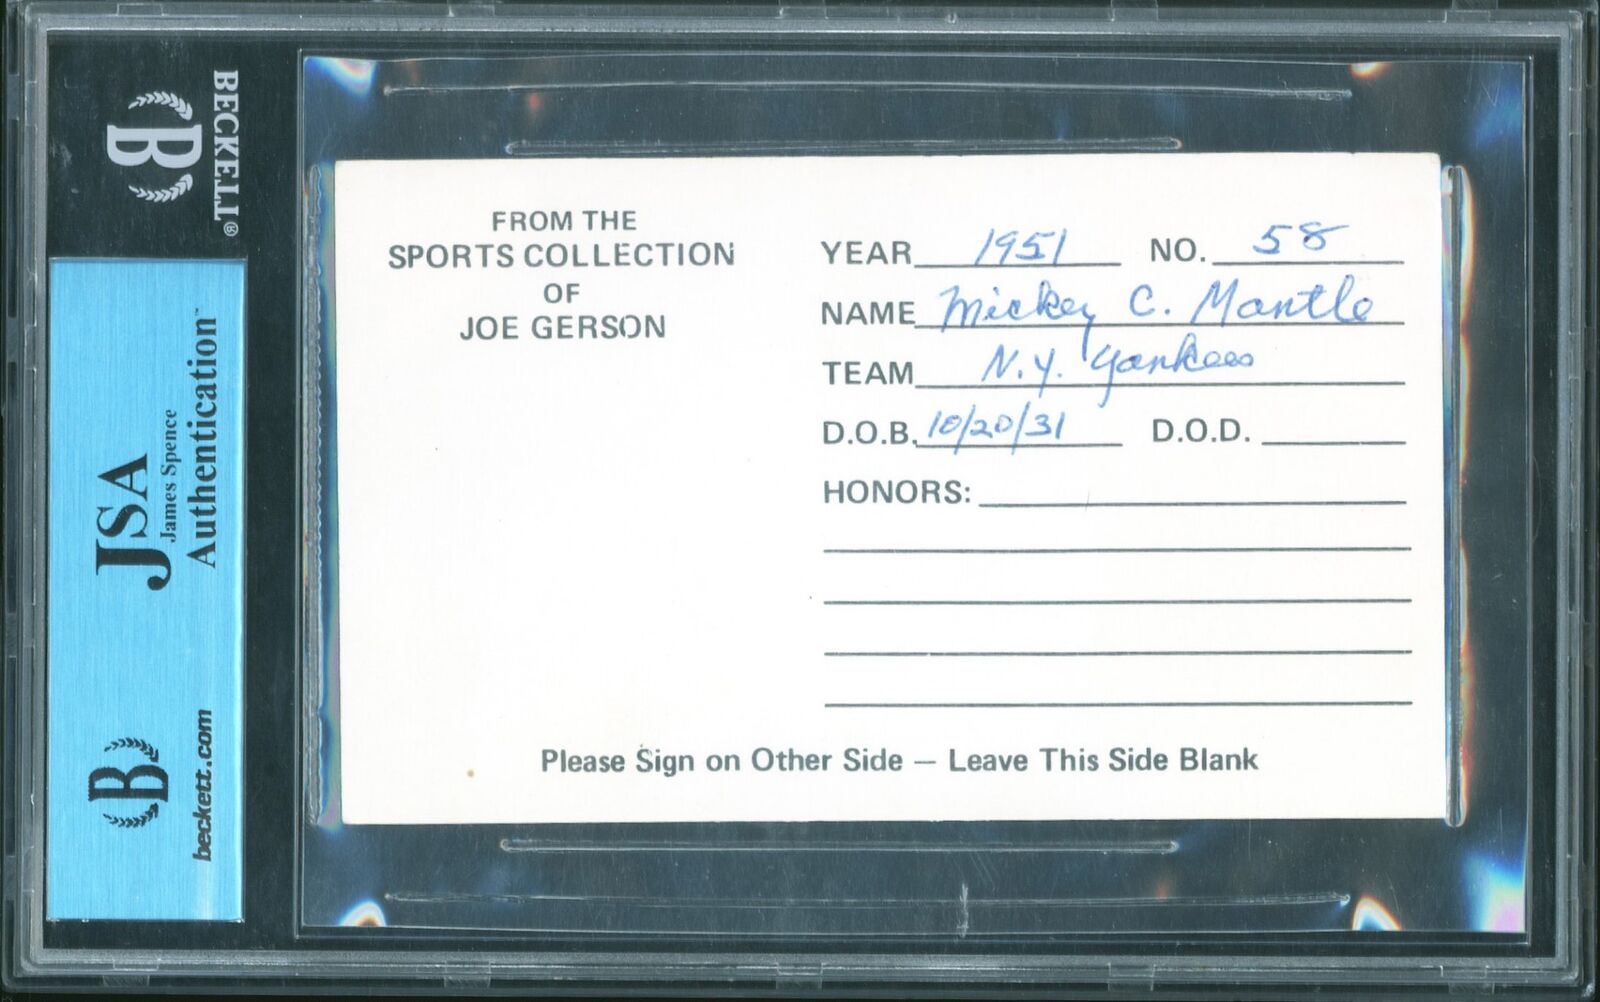 BECKETT®
B
JSA
James Spence
Authentication™
B
beckett.com
FROM THE
SPORTS COLLECTION
OF
JOE GERSON
YEAR 1951 NO. 58
NAME Mickey C. Mantle
TEAM N.Y. Yankees
D.O.B. 10/20/31 D.O.D.
HONORS:
Please Sign on Other Side — Leave This Side Blank